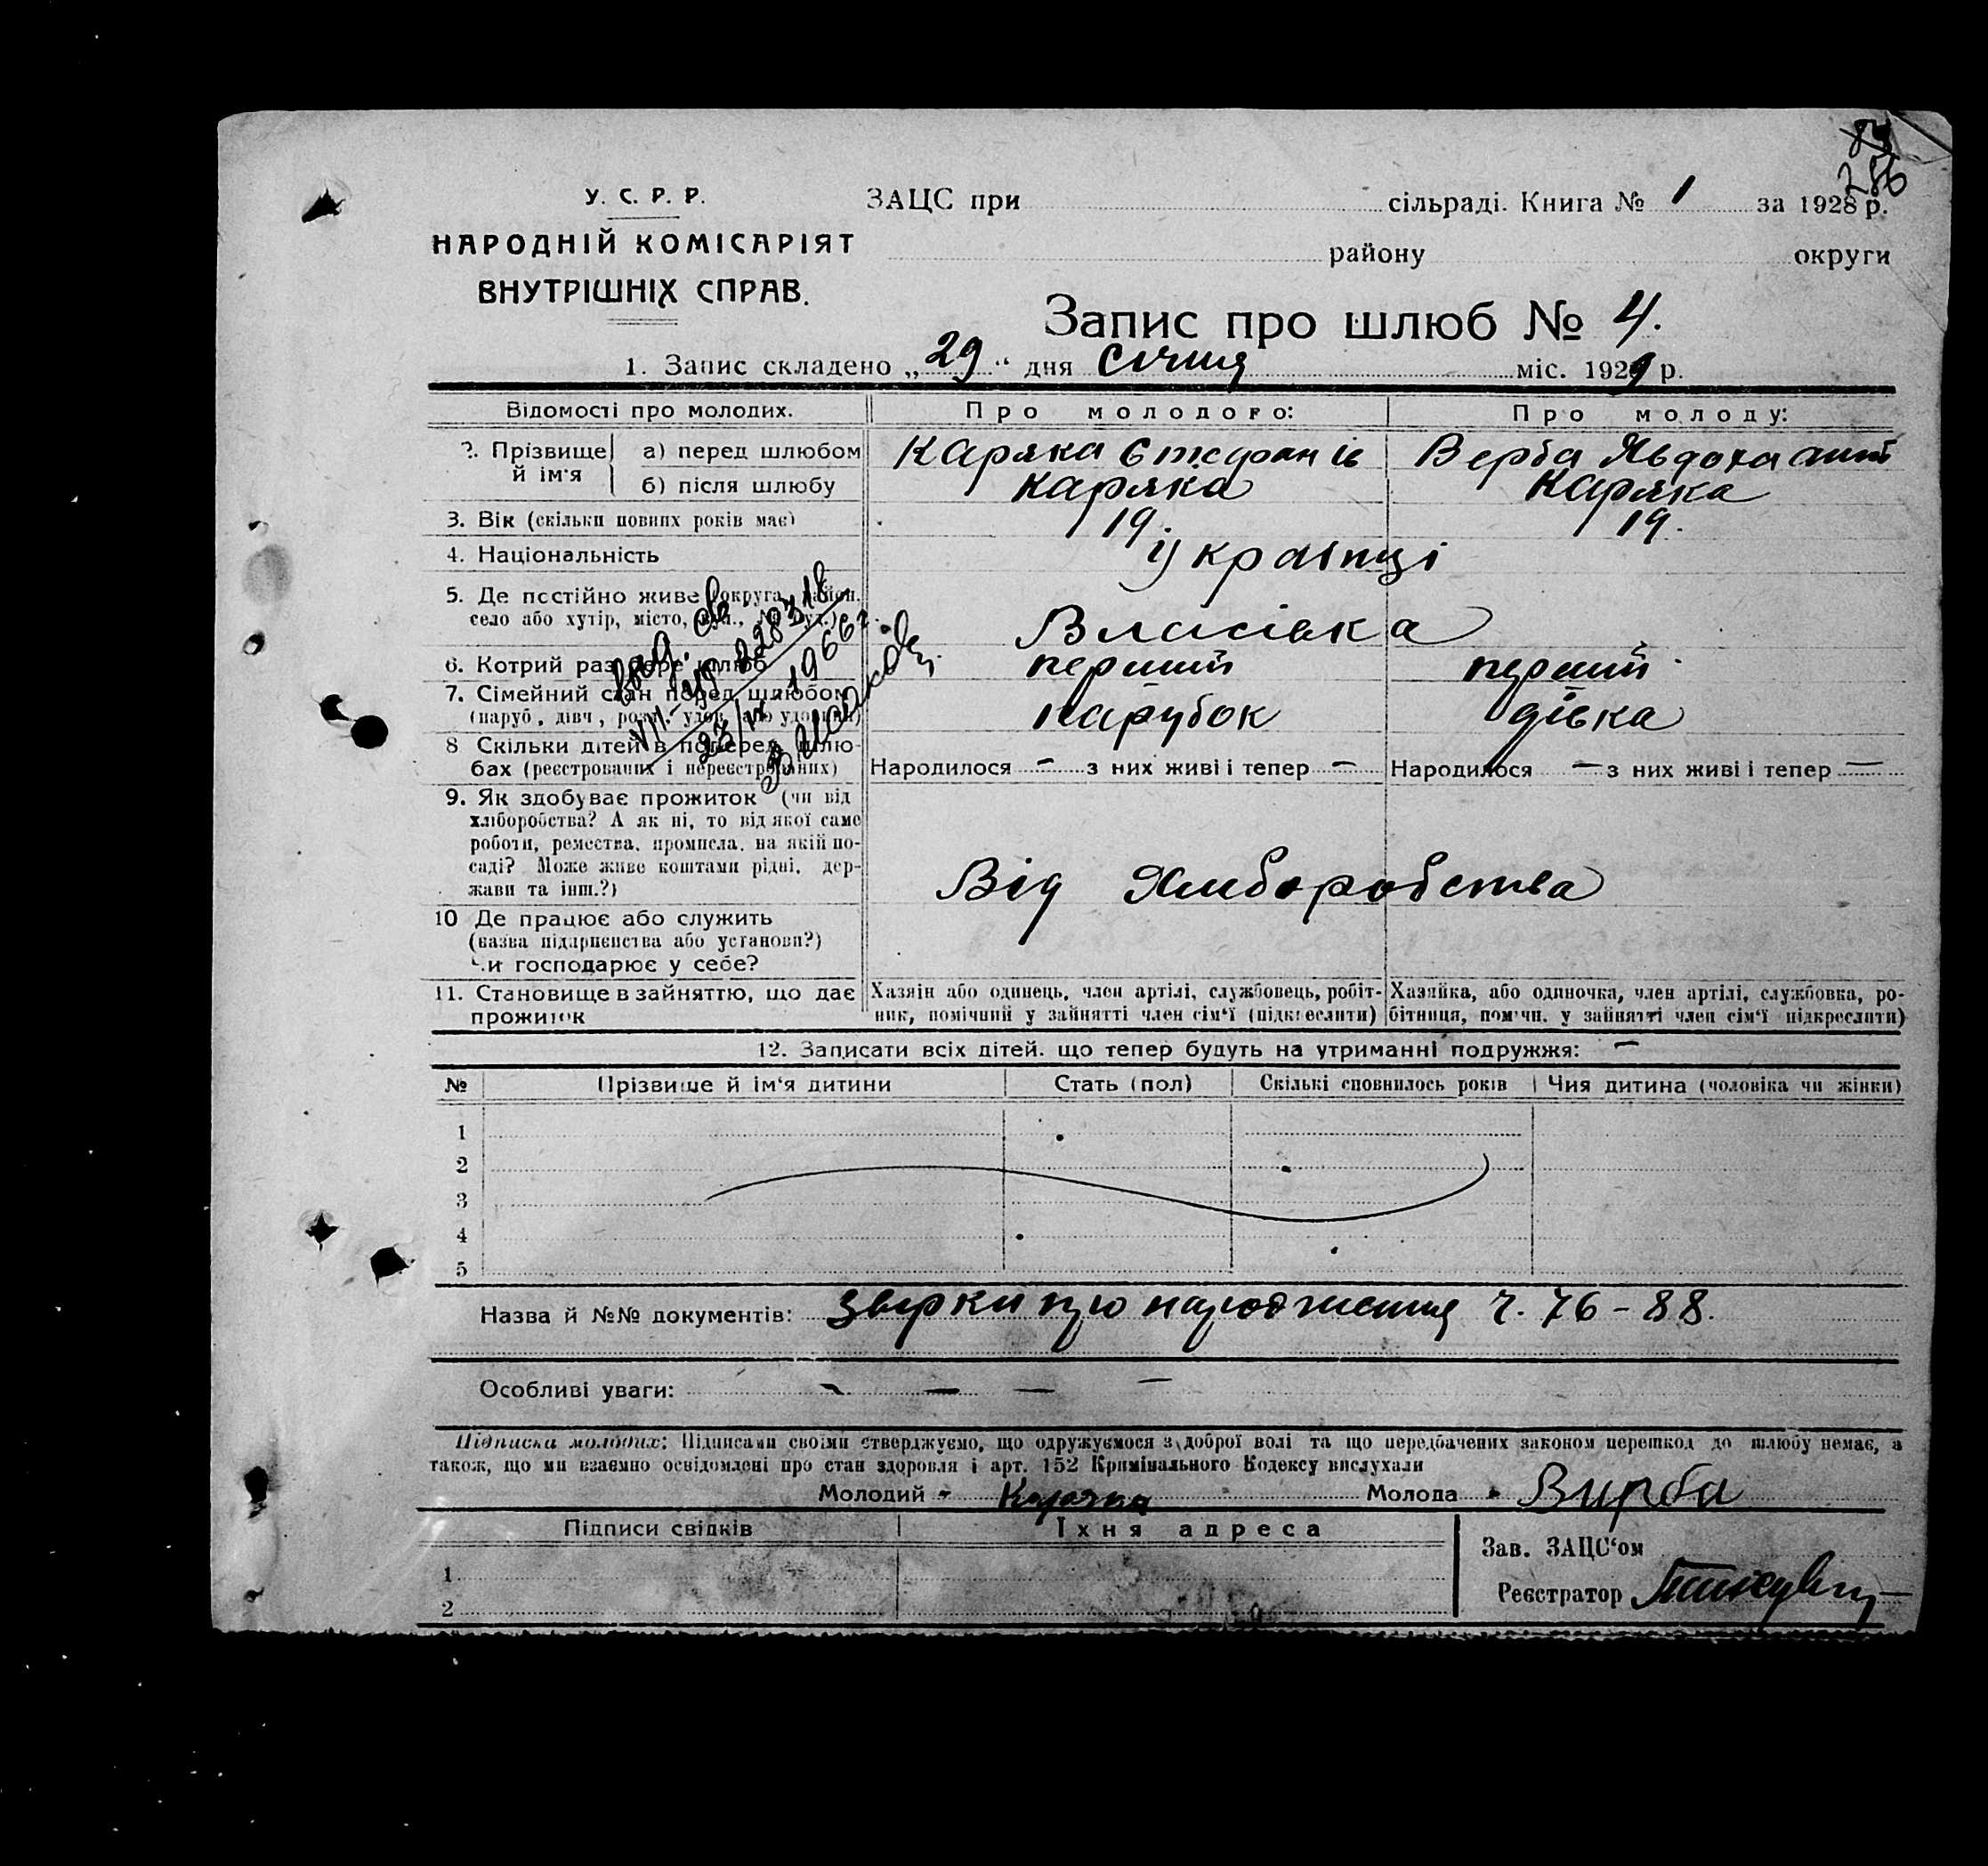 286
У. С. Р. Р.
НАРОДНІЙ КОМІСАРІЯТ
ВНУТРІШНІХ СПРАВ.
ЗАЦС при сільраді. Книга № 1 за 1928 р.
району округи
Запис про шлюб № 4.
1. Запис складено „29“ дня Січня міс. 1929 р.
Відомості про молодих. Про молодого: Про молоду:
2. Прізвище й ім'я а) перед шлюбом Каряка Стефан Верба Явдоха
б) після шлюбу Каряка Каряка
3. Вік (скільки повних років має) 19. 19.
4. Національність Українці
5. Де постійно живе (округа, район,
село або хутір, місто, вул., № буд.) Власівка
6. Котрий раз бере шлюб перший перший
7. Сімейний стан перед шлюбом
(паруб., дівч., розл., удов. або удовиця) парубок дівка
8 Скільки дітей в поперед. шлю-
бах (реєстрованих і нереєстрованих) Народилося — з них живі і тепер — Народилося — з них живі і тепер —
VII-УР 228318
23/IX 1966 г.
9. Як здобуває прожиток (чи від
хліборобства? А як ні, то від якої саме
роботи, ремества, промисла, на якій по-
саді? Може живе коштами рідні, дер-
жави та інш.?) Від Хліборобства
10 Де працює або служить
(назва підприємства або установи?)
Чи господарює у себе?
11. Становище в зайняттю, що дає
прожиток
Хазяїн або одинець, член артілі, службовець, робіт-
ник, помічний у зайнятті член сім'ї (підкреслити)
Хазяйка, або одиночка, член артілі, службовка, ро-
бітниця, помічн. у зайнятті член сім'ї підкреслити)
12. Записати всіх дітей, що тепер будуть на утриманні подружжя: —
№ Прізвище й ім'я дитини Стать (пол) Скількі сповнилось років Чия дитина (чоловіка чи жінки)
1
2
3
4
5
Назва й №№ документів: звірки про народження ч. 76-88.
Особливі уваги: — — — —
Підписка молодих: Підписами своїми стверджуємо, що одружуємося з доброї волі та що передбачених законом перешкод до шлюбу немає, а
також, що ми взаємно освідомлені про стан здоровля і арт. 152 Кримінального Кодексу вислухали
Молодий - Каряка Молода - Вирба
Підписи свідків Їхня адреса
Зав. ЗАЦС'ом
1.
Реєстратор
2